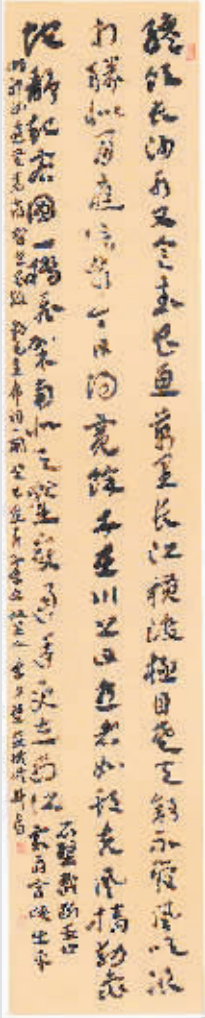 纔饮长沙水又食武昌鱼萬里长江横渡极目楚天舒不管风吹浪
打勝似闲庭信步今日得宽馀子在川上曰逝者如斯夫风樯动龟
蛇静起宏图一桥飞架南北天堑变通途更立西江
石壁截断巫山
云雨高峡出平
湖神女应无恙当惊世界殊毛主席词一阕